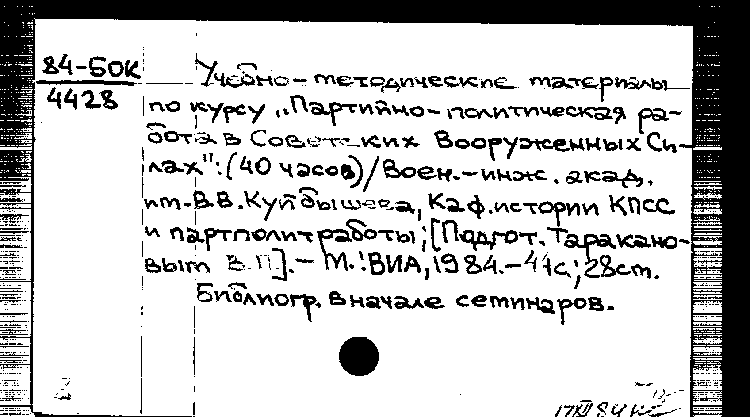 84-БОК
4428
Учебно-методические материалы
по курсу „Партийно-политическая ра-
бота в Советских Вооруженных Си-
лах": (40 часов)/Воен.-инж. акад.
им. В.В.Куйбышева, Каф.истории КПСС
и партполитработы; [Подгот. Таракано-
вым В.П]. — М.: ВИА, 1984.-41с.; 28см.
Библиогр. в начале семинаров.
17XII 84